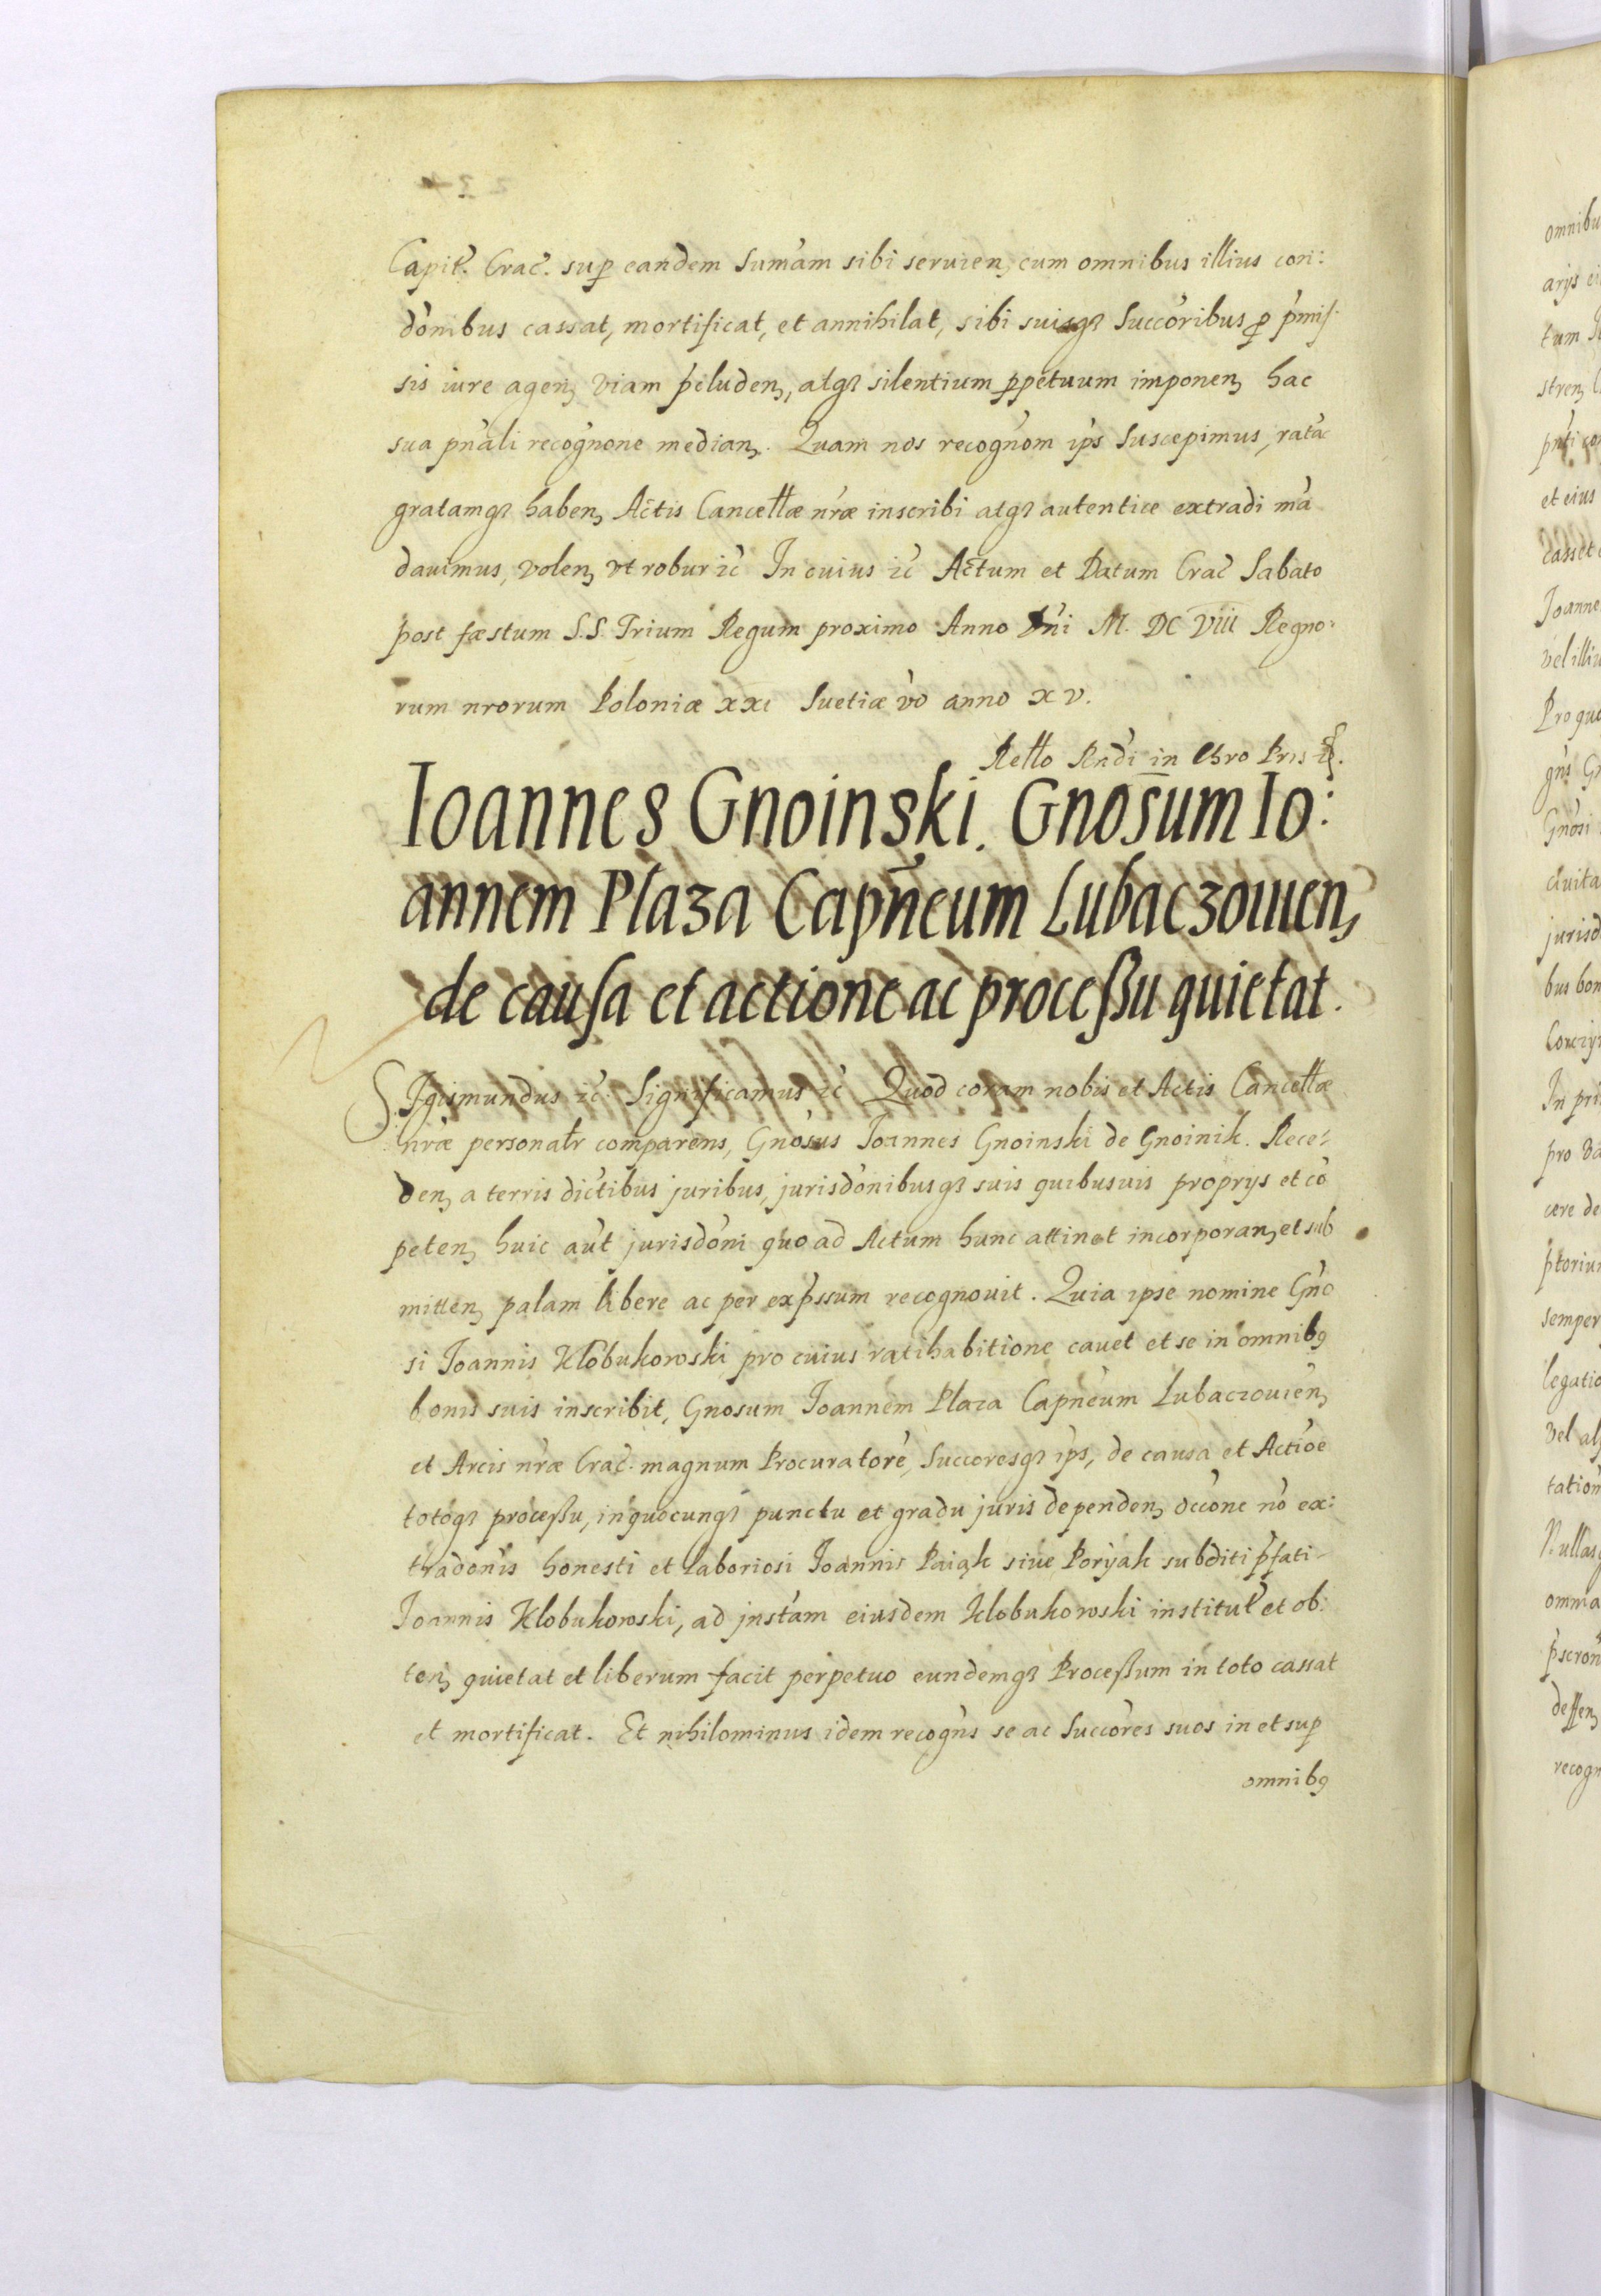 Capit̃. Crac̃. sup eandem Sum̃am sibi seruien, cum omnibus illius con:
dõnibus cassat, mortificat, et annihilat, sibi suisq3 Succõribus p p̃mis:
sis iure agen, viam p̃cluden, atq3 silentium ppetuum imponen, hac
sua pñali recognone median. Quam nos recognom ips̃ Suscepimus, ratã
gratamq3 haben, Actis Cancellæ nr̃æ inscribi atq3 autentice extradi mã
dauimus, volen, vt robur ic̃ In cuius ic̃ Actum et Datum Crac̃ Sabato
post fæstum S.S. Trium Regum proximo Anno Dñi M. DC VIII Regno:
rum nrorum Poloniæ XXI Suetiæ vo anno XV.
Rello Rñdi in Chro Pris ic̃.
Ioannes Gnoinski. Gnosum Io:
annem Plaza Capñeum Lubaczouien,
de causa et actione ac proceßu quietat.
SIgismundus ic̃. Significamus ic̃ Quod coram nobis et Actis Cancellæ
nr̃æ personalr comparens, Gnosus Joannes Gnoinski de Gnoinik. Rece:
den, a terris dictibus juribus, jurisdõnibusq3 suis quibusuis proprijs et cõ
peten, huic aut̃ jurisdõni quo ad Actum hunc attinet incorporan, et sub
mitten, palam libere ac per exp̃ssum recognouit. Quia ipse nomine Gño
si Joannis Klobukowski pro cuius ratihabitione cauet et se in omnib9
bonis suis inscribit, Gnosum Joannem Plaza Capneum Lubaczouien,
et Arcis nr̃æ Crac̃. magnum Procuratorẽ, Succoresq3 ips̃, de causa et Actiõe
totoq3 proceßu, in quocunq3 punctu et gradu juris dependen, occõne nõ ex:
tradõnis honesti et laboriosi Joannis Paiąk siue Porijak subditi p̃fati
Joannis Klobukowski, ad jnstãm eiusdem Klobukowski institut̃ et ob:
ten, quietat et liberum facit perpetuo eundemq3 Proceßum in toto cassat
et mortificat. Et nihilominus idem recogñs se ac Succõres suos in et sup
omnib9